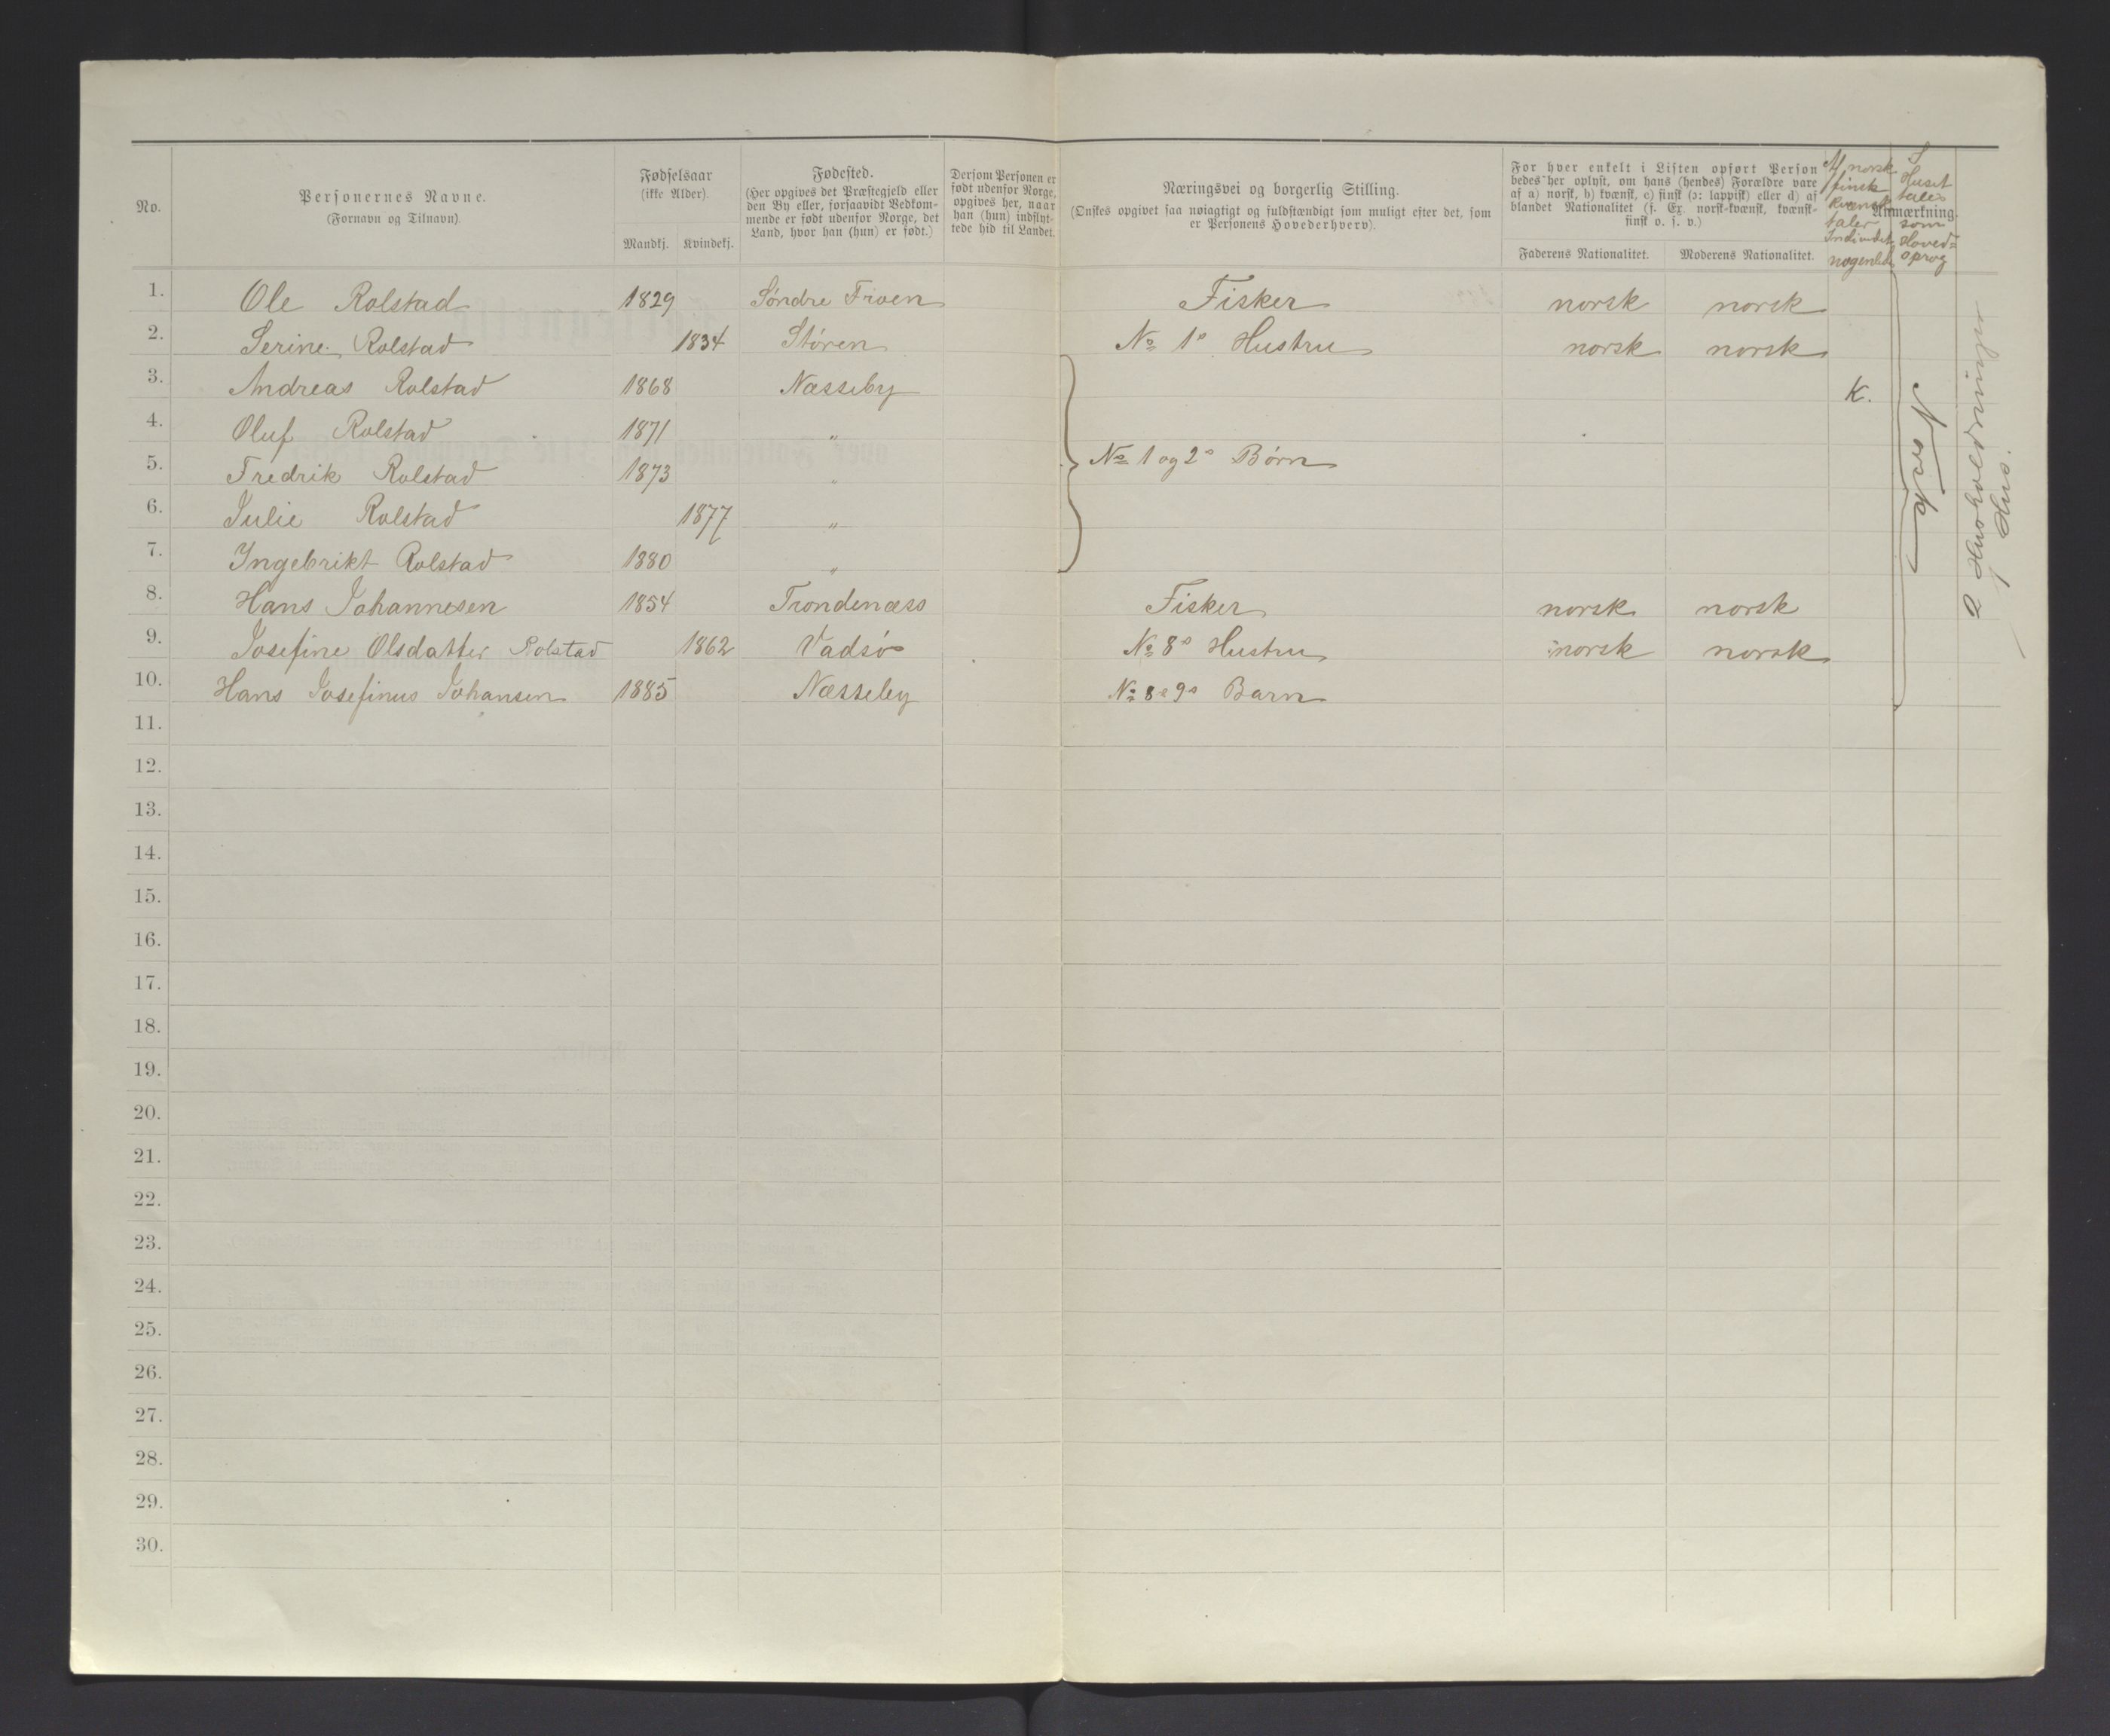 No.
Personernes Navne.
(Fornavn og Tilnavn).
Fødselsaar
(ikke Alder).
Mandkj. Kvindekj.
Fødested.
(Her opgives det Præstegjeld eller
den By eller, forsaavidt Vedkom-
mende er født udenfor Norge, det
Land, hvor han (hun) er født.)
Dersom Personen er
født udenfor Norge,
opgives her, naar
han (hun) indflyt-
tede hid til Landet.
Næringsvei og borgerlig Stilling.
(Ønskes opgivet saa nøiagtigt og fuldstændigt som muligt efter det, som
er Personens Hovederhverv).
For hver enkelt i Listen opført Person
bedes her oplyst, om hans (hendes) Forældre vare
af a) norsk, b) kvænsk, c) finsk (ɔ: lappisk) eller d) af
blandet Nationalitet (f. Ex. norsk-kvænsk, kvænsk-
finsk o. s. v.)
Faderens Nationalitet. Moderens Nationalitet.
Anmærkning.
Af norsk
finsk
kvænsk
taler
Individet
nogenlede
I
Huset
tales
som
Hoved=
sprog
1. Ole Rolstad 1829 Søndre Froen Fisker norsk norsk
2. Serine Rolstad 1834 Støren No 1s Hustru norsk norsk
3. Andreas Rolstad 1868 Næsseby K.
4. Oluf Rolstad 1871 "
5. Fredrik Rolstad 1873 " No 1 og 2s Børn
6. Julie Rolstad 1877 "
7. Ingebrikt Rolstad 1880 "
8. Hans Johannesen 1854 Trondenæss Fisker norsk norsk
9. Josefine Olsdatter Rolstad 1862 Vadsø No 8s Hustru norsk norsk
10. Hans Josefinus Johansen 1885 Næsseby No 8 9s Barn
Norsk
2 Husholdninger
1 Hus.
11.
12.
13.
14.
15.
16.
17.
18.
19.
20.
21.
22.
23.
24.
25.
26.
27.
28.
29.
30.